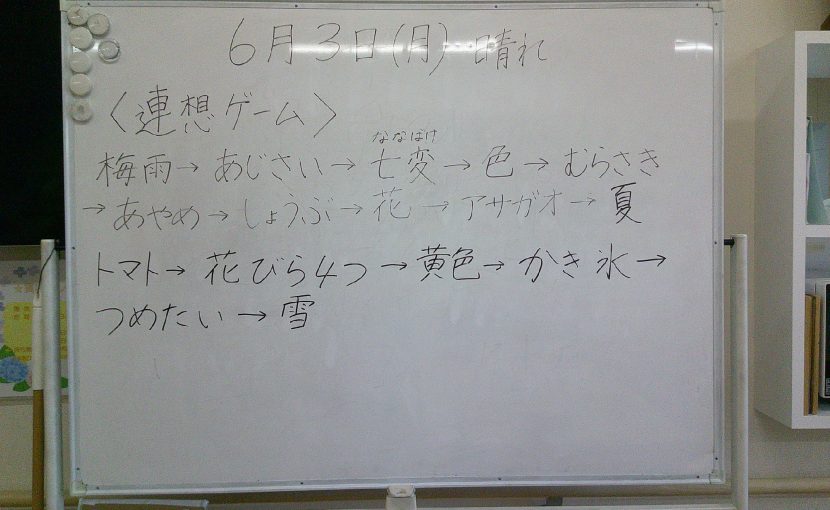 6月3日(月)…晴れ
〈連想ゲーム〉
ななばけ
梅雨→あじさい→七変→色→むらさき
→あやめ→しょうぶ→花→アサガオ→夏
トマト→花びら4つ→黄色→かき氷→
つめたい→雪